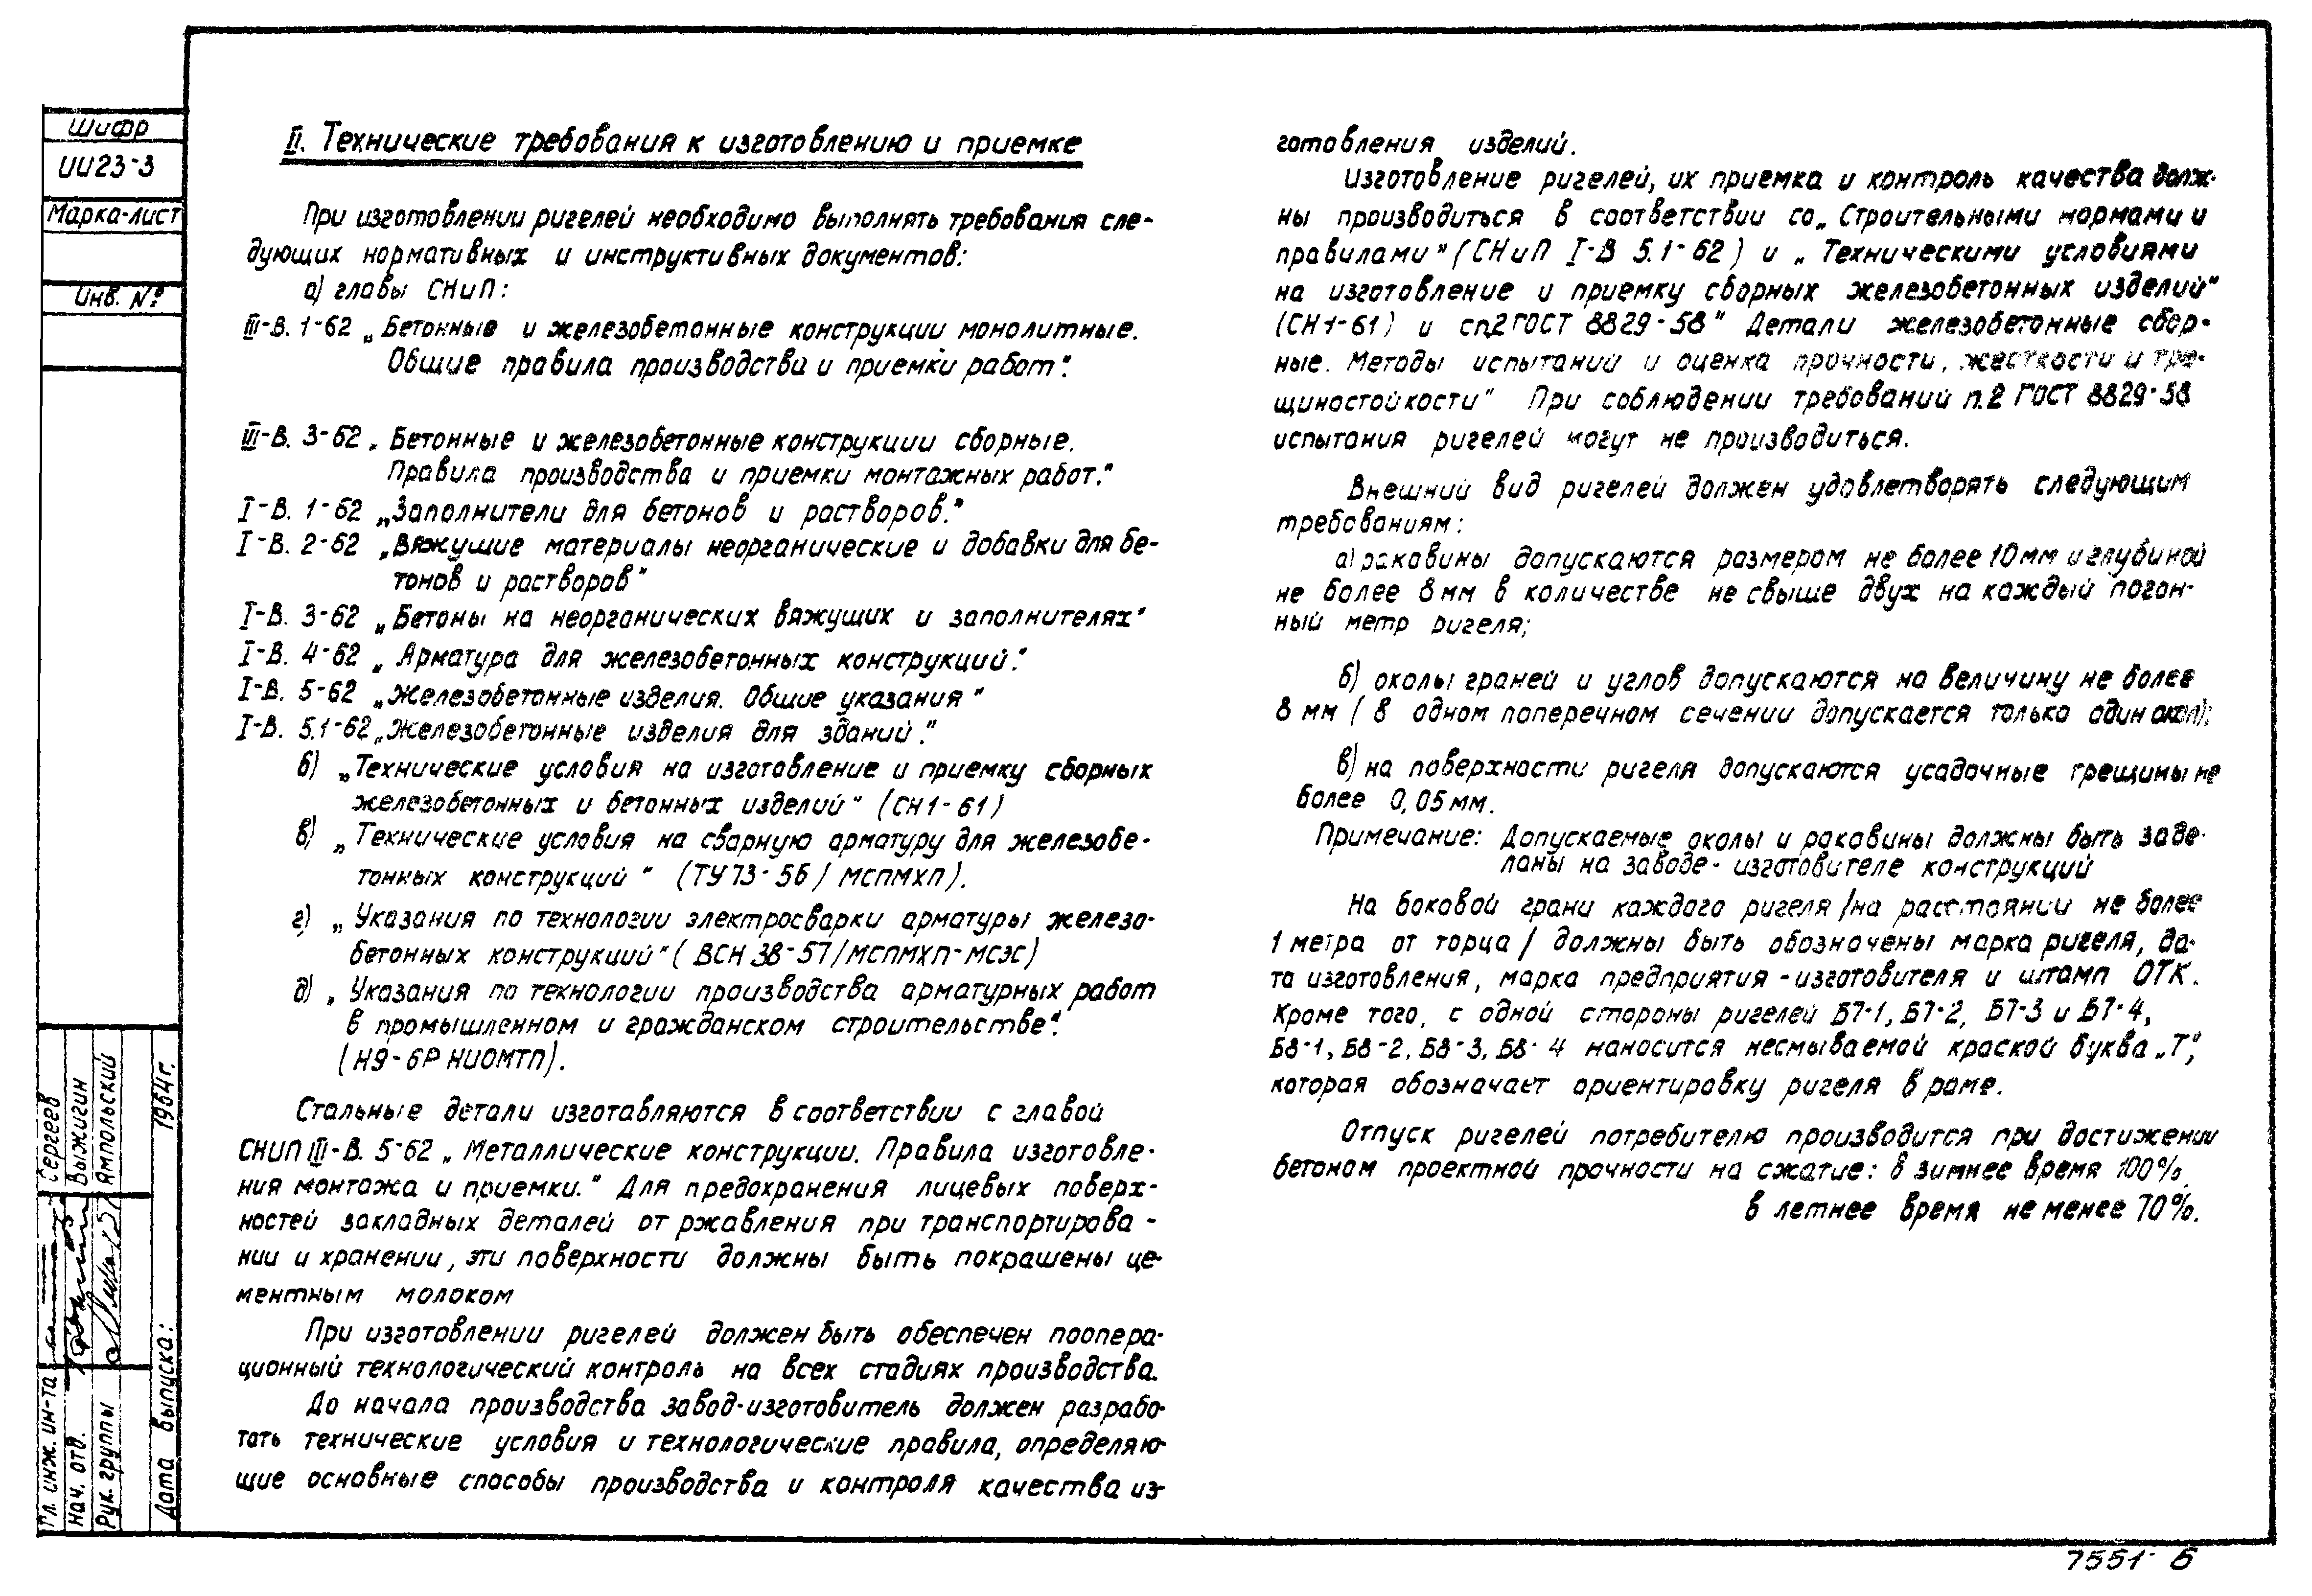 Шифр
ИИ23-3
Марка-лист
Инв. №
II. Технические требования к изготовлению и приемке
При изготовлении ригелей необходимо выполнять требования сле-
дующих нормативных и инструктивных документов:
а) главы СНиП:
III-В. 1-62 „Бетонные и железобетонные конструкции монолитные.
Общие правила производства и приемки работ".
III-В. 3-62 „Бетонные и железобетонные конструкции сборные.
Правила производства и приемки монтажных работ."
I-В. 1-62 „Заполнители для бетонов и растворов."
I-В. 2-62 „Вяжущие материалы неорганические и добавки для бе-
тонов и растворов"
I-В. 3-62 „Бетоны на неорганических вяжущих и заполнителях"
I-В. 4-62 „Арматура для железобетонных конструкций".
I-В. 5-62 „Железобетонные изделия. Общие указания"
I-В. 5.1-62 „Железобетонные изделия для зданий."
б) „Технические условия на изготовление и приемку сборных
железобетонных и бетонных изделий" (СН1-61)
в) „Технические условия на сварную арматуру для железобе-
тонных конструкций" (ТУ73-56/МСПМХП).
г) „Указания по технологии электросварки арматуры железо-
бетонных конструкций" (ВСН 38-57/МСПМХП-МСЭС)
д) „Указания по технологии производства арматурных работ
в промышленном и гражданском строительстве".
(Н9-6Р НИОМТП).
Стальные детали изготавляются в соответствии с главой
СНИП III-В. 5-62 „Металлические конструкции. Правила изготовле-
ния монтажа и приемки." Для предохранения лицевых поверх-
ностей закладных деталей от ржавления при транспортирова-
нии и хранении, эти поверхности должны быть покрашены це-
ментным молоком
При изготовлении ригелей должен быть обеспечен поопера-
ционный технологический контроль на всех стадиях производства.
До начала производства завод-изготовитель должен разрабо-
тать технические условия и технологические правила, определяю-
щие основные способы производства и контроля качества из-
готовления изделий.
Изготовление ригелей, их приемка и контроль качества долж-
ны производиться в соответствии со „Строительными нормами и
правилами" (СНиП I-В 5.1-62) и „Техническими условиями
на изготовление и приемку сборных железобетонных изделий"
(СН1-61) и сп.2 ГОСТ 8829-58" Детали железобетонные сбор-
ные. Методы испытаний и оценка прочности, жесткости и тре-
щиностойкости" При соблюдении требований п.2 ГОСТ 8829-58
испытания ригелей могут не производиться.
Внешний вид ригелей должен удовлетворять следующим
требованиям:
а) раковины допускаются размером не более 10мм и глубиной
не более 8мм в количестве не свыше двух на каждый погон-
ный метр ригеля;
б) околы граней и углов допускаются на величину не более
8 мм (в одном поперечном сечении допускается только один окол);
в) на поверхности ригеля допускаются усадочные трещины не
более 0,05мм.
Примечание: Допускаемые околы и раковины должны быть заде-
ланы на заводе-изготовителе конструкций
На боковой грани каждого ригеля /на расстоянии не более
1 метра от торца/ должны быть обозначены марка ригеля, да-
та изготовления, марка предприятия-изготовителя и штамп ОТК.
Кроме того, с одной стороны ригелей Б7-1, Б7-2, Б7-3 и Б7-4,
Б8-1, Б8-2, Б8-3, Б8-4 наносится несмываемой краской буква „Т",
которая обозначает ориентировку ригеля в раме.
Отпуск ригелей потребителю производится при достижении
бетоном проектной прочности на сжатие: в зимнее время 100%.
в летнее время не менее 70%.
Гл. инж. ин-та Сергеев
Нач. отд. Выжигин
Рук. группы Ямпольский
Дата выпуска: 1964г.
7551 Б